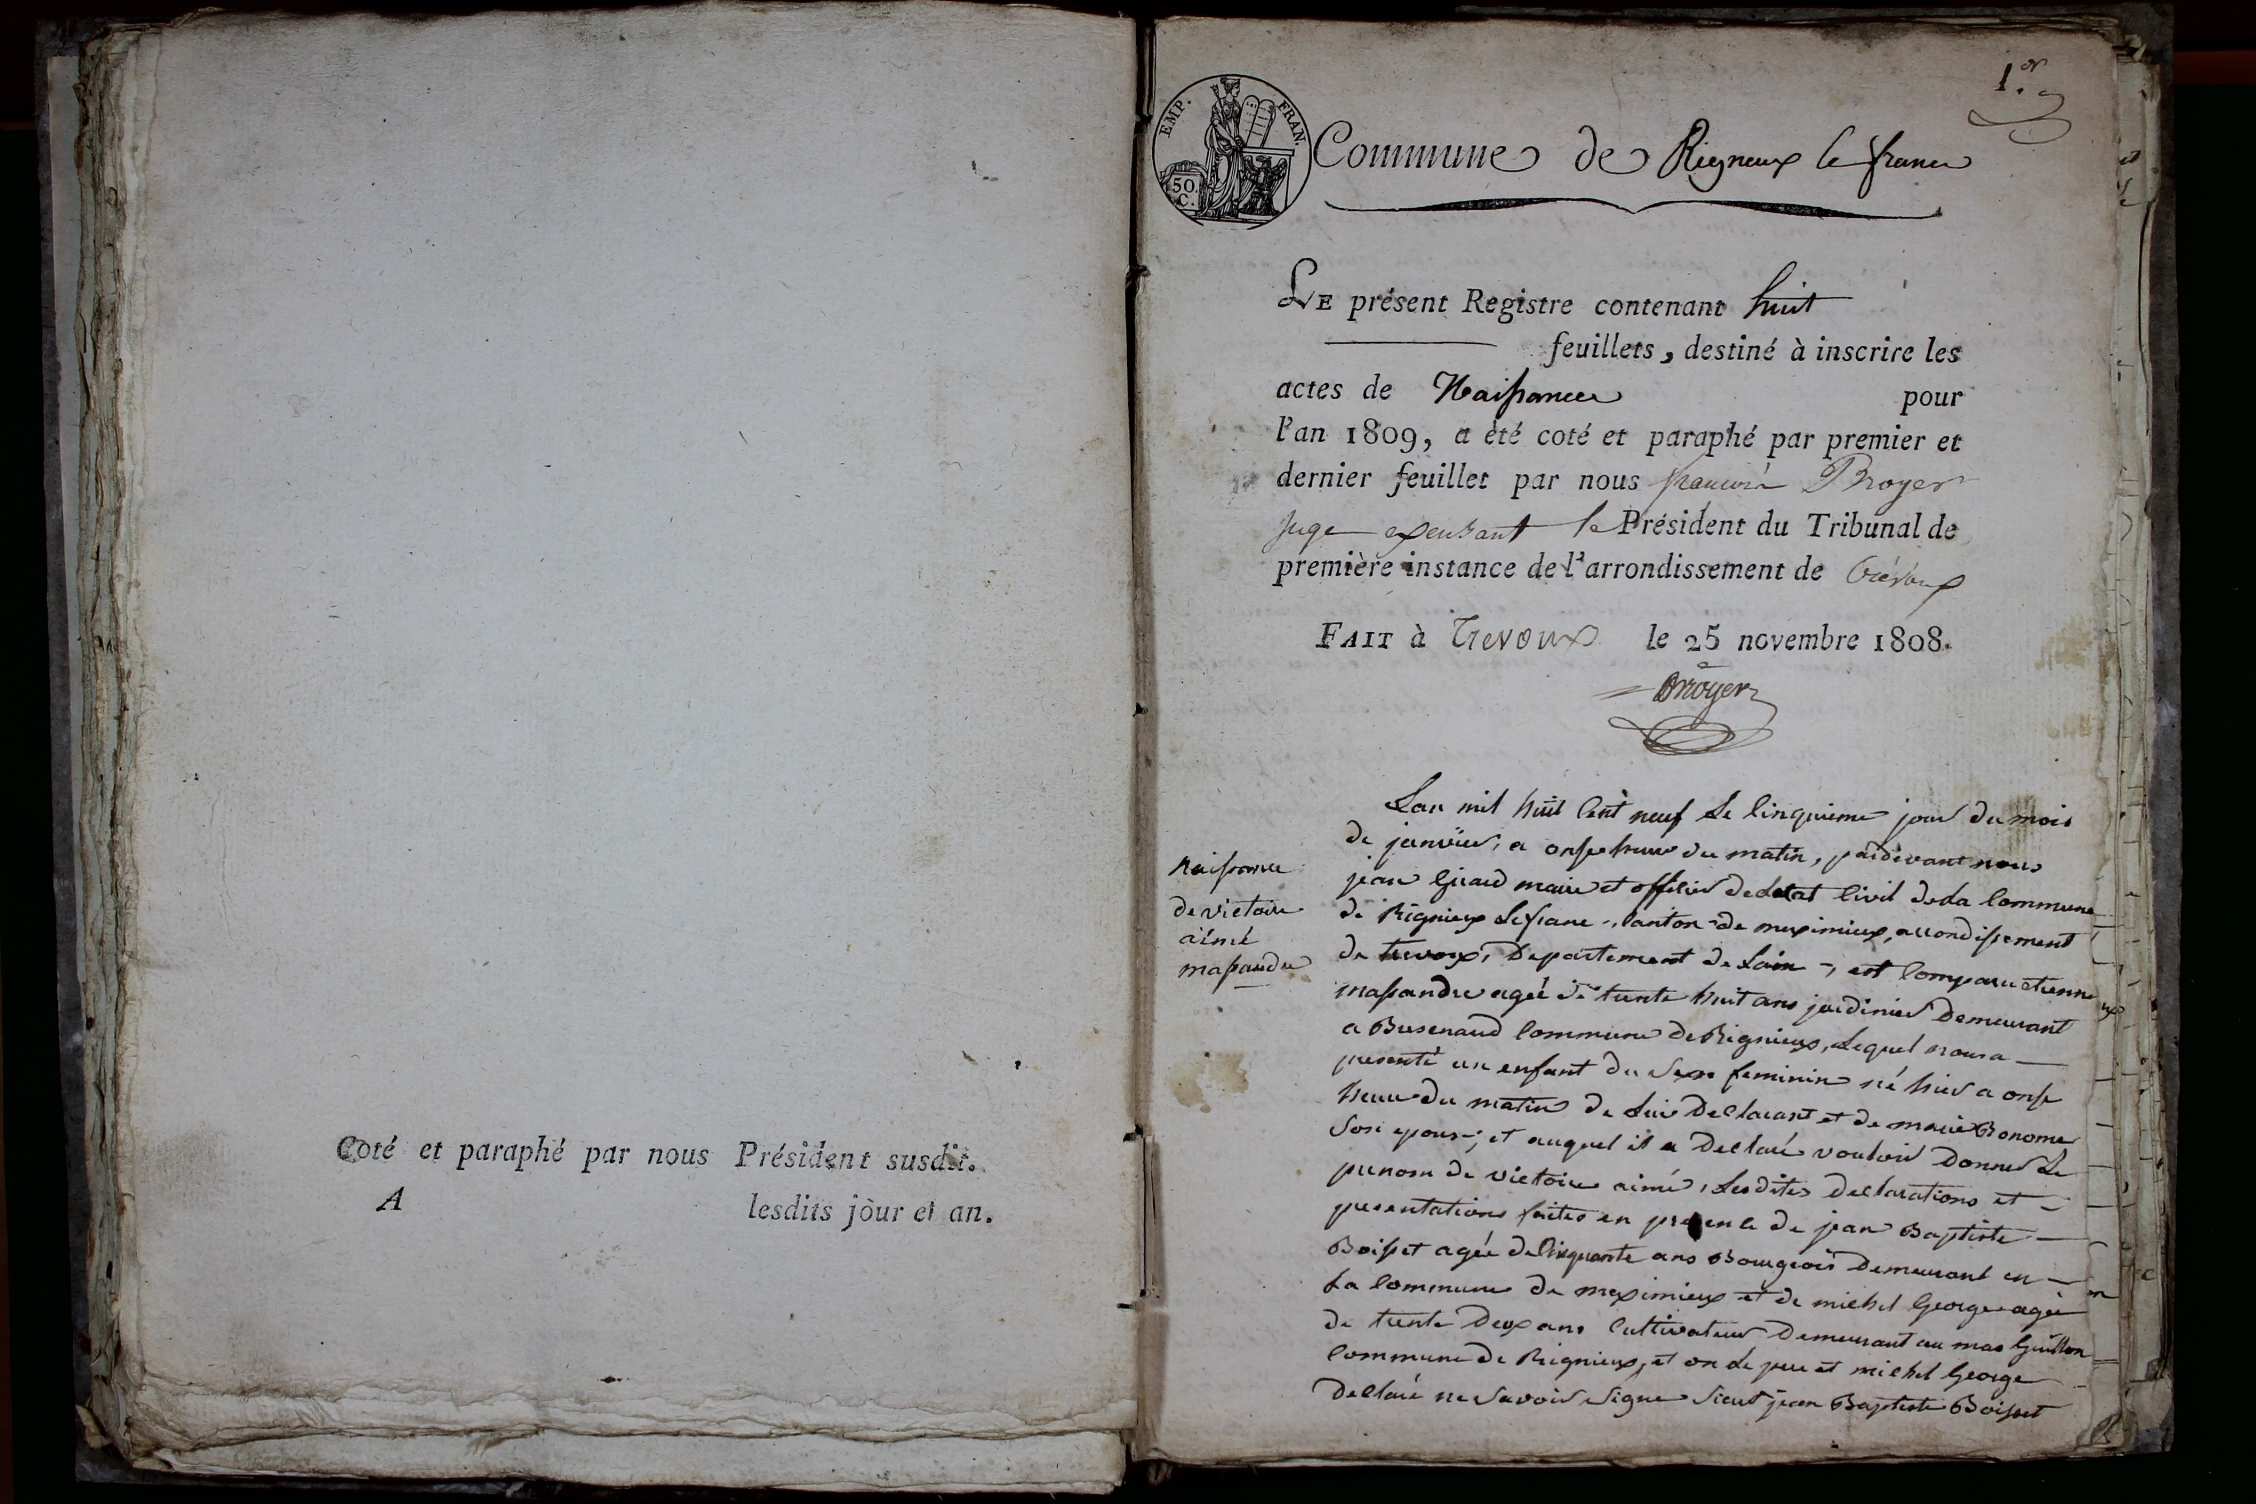 Coté et paraphé par nous Président susdit.
A lesdits jour et an.
1.er
EMP. FRAN.
50 C.
Commune de Rigneux le franc
LE présent Registre contenant huit
feuillets, destiné à inscrire les
actes de Naissance pour
l'an 1809, a été coté et paraphé par premier et
dernier feuillet par nous francois Broyer
juge exerçant le Président du Tribunal de
première instance de l'arrondissement de Trévoux
FAIT à Trevoux le 25 novembre 1808.
Broyer
Naissance
de victoire
aimé
massandre
Lan mil huit Cent neuf Le Cinquieme jour du mois
de janvier, a onse heure du matin, pardevant nous
jean Girard maire et officier de Letat Civil de La Commune
de Rignieux Lefranc, Canton de meximieux, arrondissement
de trevoux, Departement de Lain, est Comparu etienne
massandre agée de trente huit ans jardinier Demeurant
a Busenaud Commune de Rignieux, Lequel nous a
presenté un enfant du Sexe feminin né hier a onse
heure du matin de Lui Declarant et de marie Bonome
Son epouse; et auquel il a Declaré vouloir Donner Le
prenom de victoire aimé, Lesdites Declarations et
presentations faites en presence de jean Baptiste
Boisset agée de Cinquante ans Bourgeois Demeurant en
La Commune de meximieux et de michel George agée
de trente Deux ans Cultivateur Demeurant au mas Guillon
Commune de Rignieux, et on Le pere et michel George
Declaré ne Savoir Signe Sieur jean Baptiste Boisset